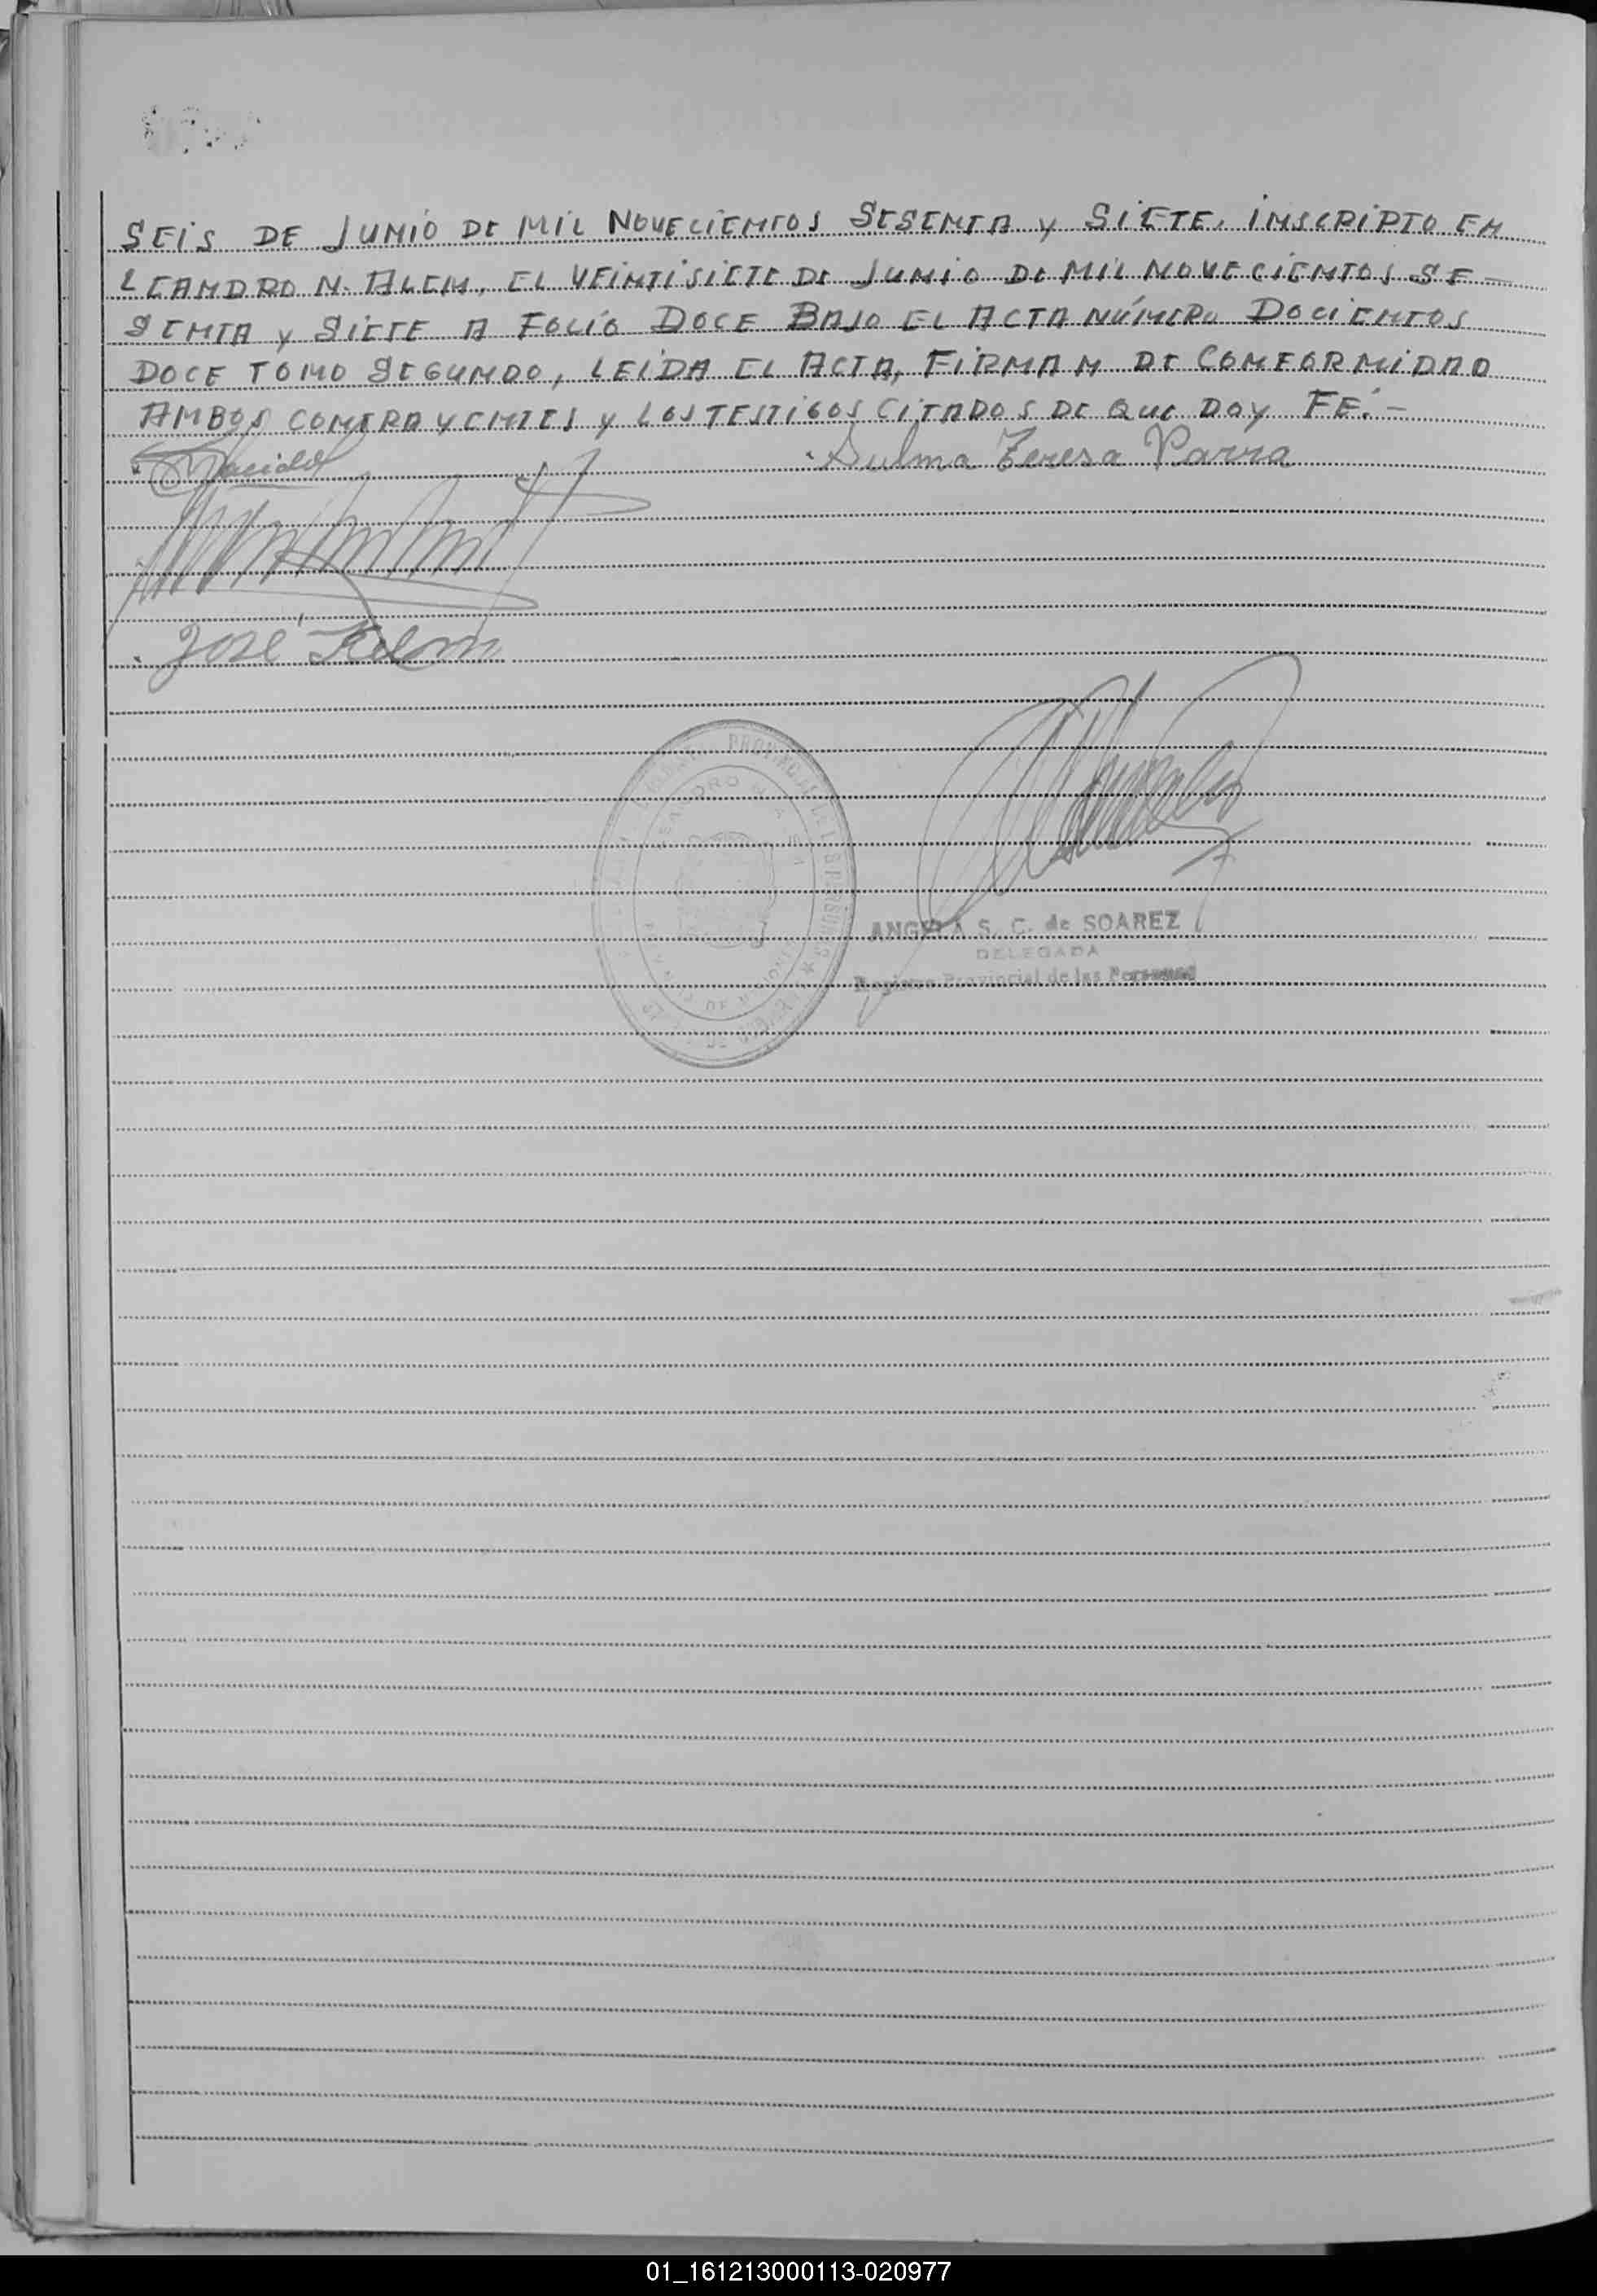 SEIS DE JUNIO DE MIL NOVECIENTOS SESENTA Y SIETE, INSCRIPTO EN
LEANDRO N. ALEM, EL VEINTISIETE DE JUNIO DE MIL NOVECIENTOS SE-
SENTA Y SIETE A FOLIO DOCE BAJO EL ACTA NÚMERO DOCIENTOS
DOCE TOMO SEGUNDO, LEIDA EL ACTA, FIRMAN DE CONFORMIDAD
AMBOS CONTRAYENTES Y LOS TESTIGOS CITADOS DE QUE DOY FE.-
Sulma Teresa Parra
José
LEANDRO N. ALEM
ANGELA S. C. de SOAREZ
DELEGADA
Registro Provincial de las Personas
01_161213000113-020977